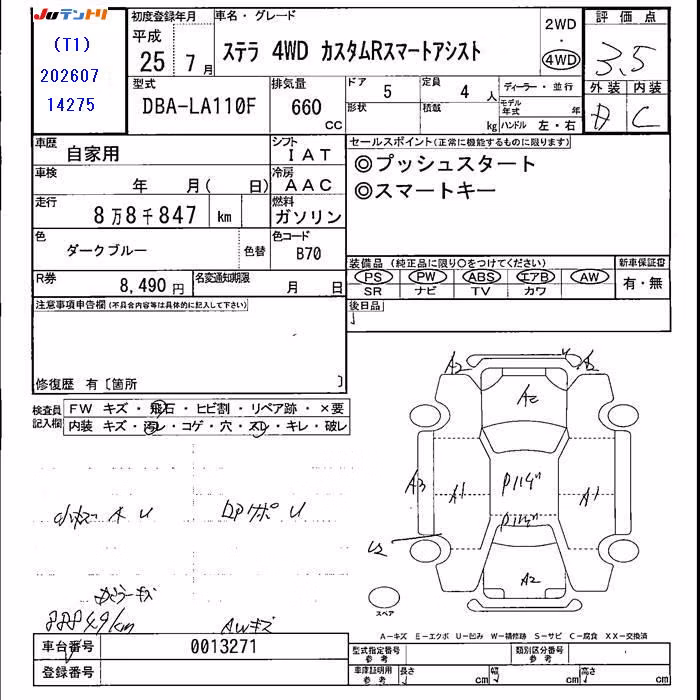 Juテントリ
(T1)
202607
14275
初度登録年月
平成
25 年 7 月
車名・グレード
ステラ 4WD カスタムRスマートアシスト
2WD
・
4WD
評価点
3.5
外装 内装
C
型式
DBA-LA110F
排気量
660
CC
ドア
5
形状
定員
4 人
積載
kg
ディーラー・並行
モデル年式 年
ハンドル 左・右
車歴
自家用
シフト
IAT
車検
年 月( 日)
冷房
AAC
走行
8万8千847 km
燃料
ガソリン
色
ダークブルー
色替
色コード
B70
R券
8,490 円
名変通知期限
月 日
セールスポイント(正常に機能するものに限ります)
◎プッシュスタート
◎スマートキー
装備品(純正品に限り○をつけてください)
PS PW ABS エアB AW
SR ナビ TV カワ
新車保証書
有・無
後日品
注意事項申告欄(不具合内容等は具体的に記入して下さい)
修復歴 有〔箇所 〕
検査員記入欄
FW キズ・飛石・ヒビ割・リペア跡・×要
内装 キズ・汚レ・コゲ・穴・スレ・キレ・破レ
小キズ 木 U
キズ
AWキズ
A2
A2
A2
A3
A1
A1
U2
A2
スペア
A-キズ E-エクボ U-凹み W-補修跡 S-サビ C-腐食 XX-交換済
車台番号
0013271
登録番号
型式指定番号
参考
類別区分番号
参考
車庫証明用
参考
長さ cm
幅 cm
高さ cm